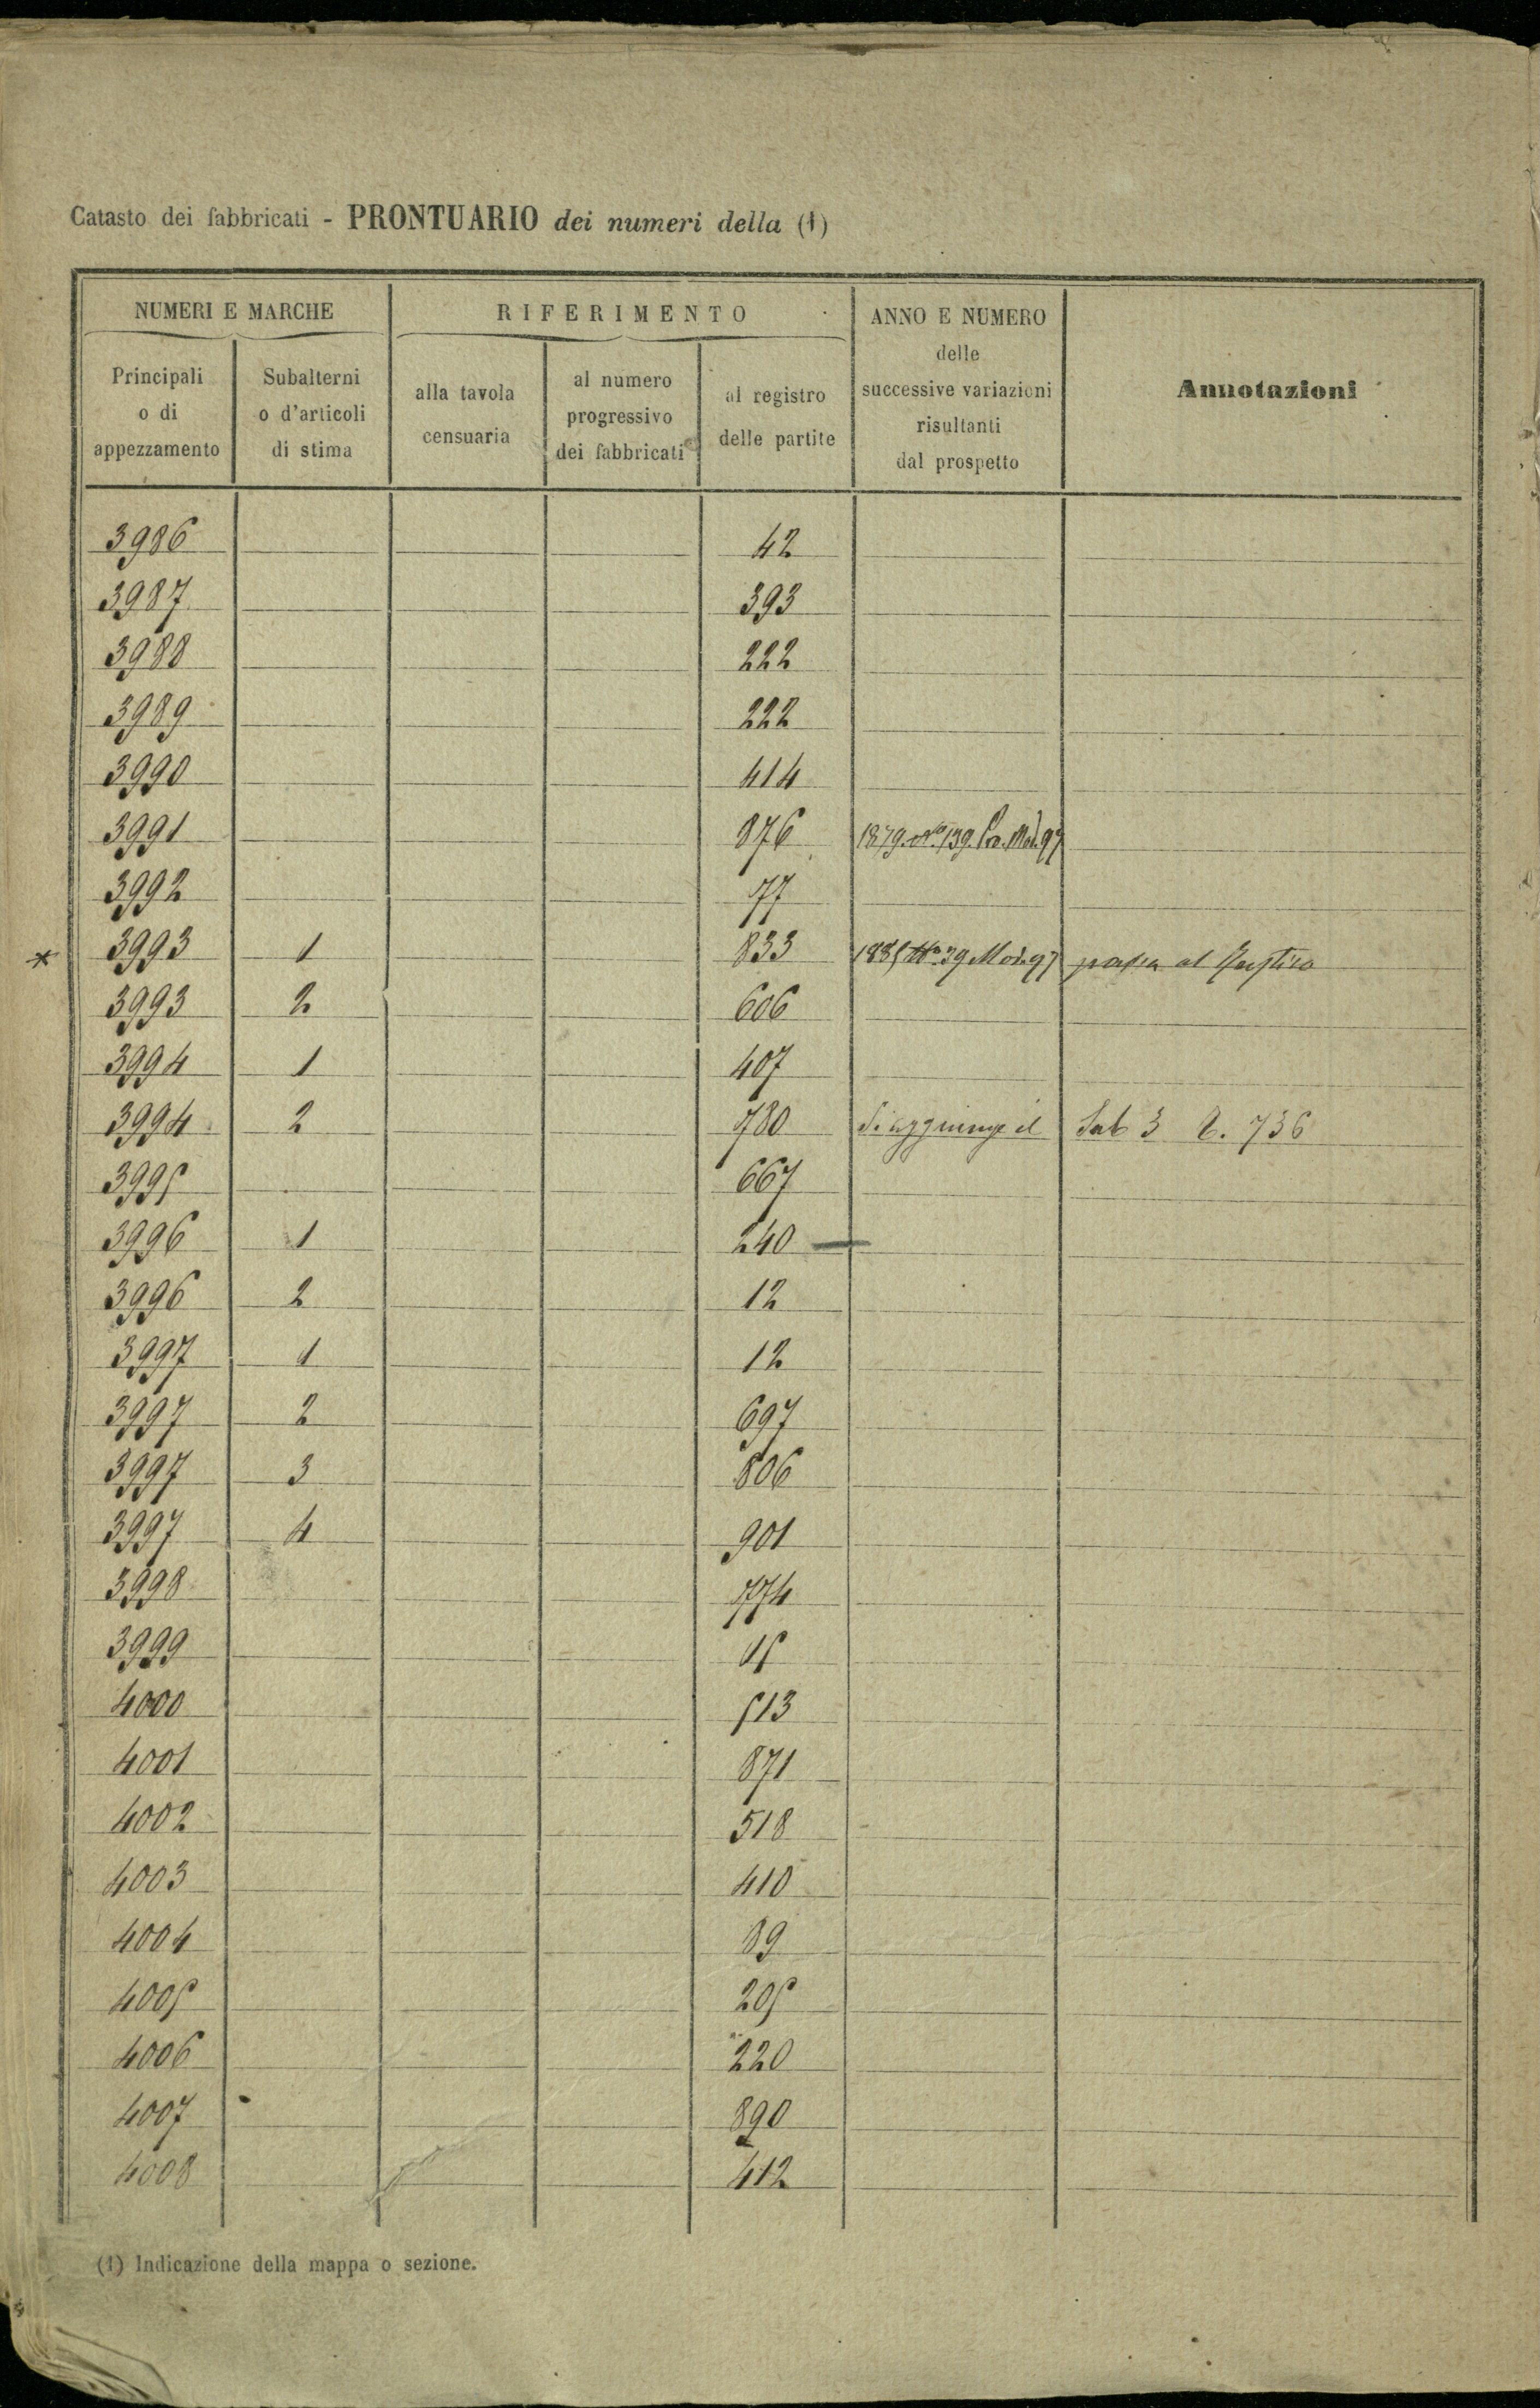 Catasto dei fabbricati - PRONTUARIO dei numeri della (1)
NUMERI E MARCHE
RIFERIMENTO
ANNO E NUMERO
delle
successive variazioni
risultanti
dal prospetto
Annotazioni
Principali
o di
appezzamento
Subalterni
o d'articoli
di stima
alla tavola
censuaria
al numero
progressivo
dei fabbricati
al registro
delle partite
3986 42
3987 393
3988 222
3989 222
3990 414
3991 876 1879. No 139. Mod. 97
3992 77
* 3993 1 833 1885 No 39 Mod. 97 passa al Rustico
3993 2 606
3994 1 407
3994 2 780 Si aggiunge il Sub 3 736
3995 667
3996 1 240 —
3996 2 12
3997 1 12
3997 2 697
3997 3 806
3997 4 901
3998 774
3999 15
4000 513
4001 871
4002 518
4003 410
4004 89
4005 205
4006 220
4007 890
4008 412
(1) Indicazione della mappa o sezione.